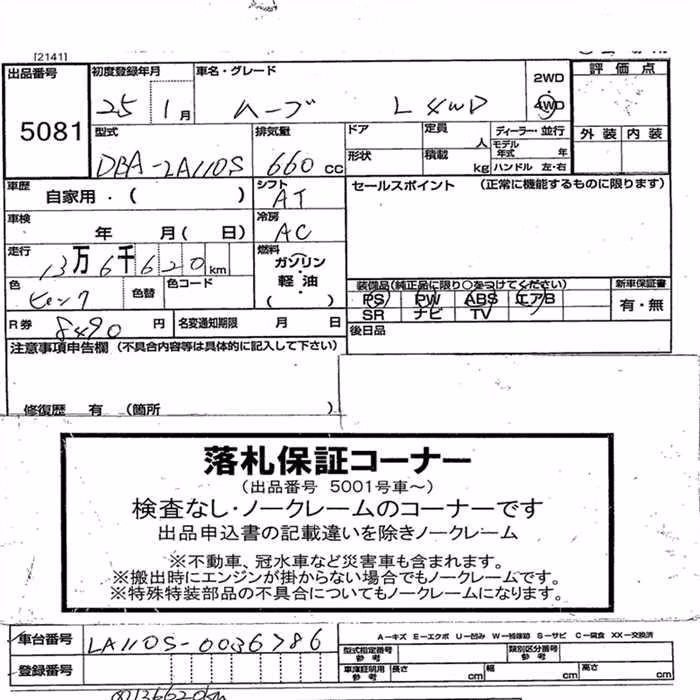 [2141]
出品番号
5081
初度登録年月
25 1月
車名・グレード
ムーブ L 4WD
2WD
4WD
評価点
外装 内装
型式
DBA-LA110S
排気量
660 cc
ドア
形状
定員 人
積載 kg
ディーラー・並行
モデル年式 年
ハンドル 左・右
車歴
自家用・( )
シフト
AT
セールスポイント (正常に機能するものに限ります)
車検
年 月( 日)
冷房
AC
走行
13万6千620km
燃料
ガソリン
・
軽油
( )
色
ピンク
色替
色コード
装備品(純正品に限り○をつけてください)
PS PW ABS エアB
SR ナビ TV
新車保証書
有・無
R券 8490円
名変通知期限 月 日
後日品
注意事項申告欄 (不具合内容等は具体的に記入して下さい)
修復歴 有 (箇所 )
落札保証コーナー
(出品番号 5001号車～)
検査なし・ノークレームのコーナーです
出品申込書の記載違いを除きノークレーム
※不動車、冠水車など災害車も含まれます。
※搬出時にエンジンが掛からない場合でもノークレームです。
※特殊特装部品の不具合についてもノークレームになります。
車台番号
LA110S-0036786
A－キズ E－エクボ U－凹み W－補修跡 S－サビ C－腐食 XX－交換済
型式指定番号
参考
類別区分番号
参考
登録番号
車庫証明用
参考
長さ cm
幅 cm
高さ cm